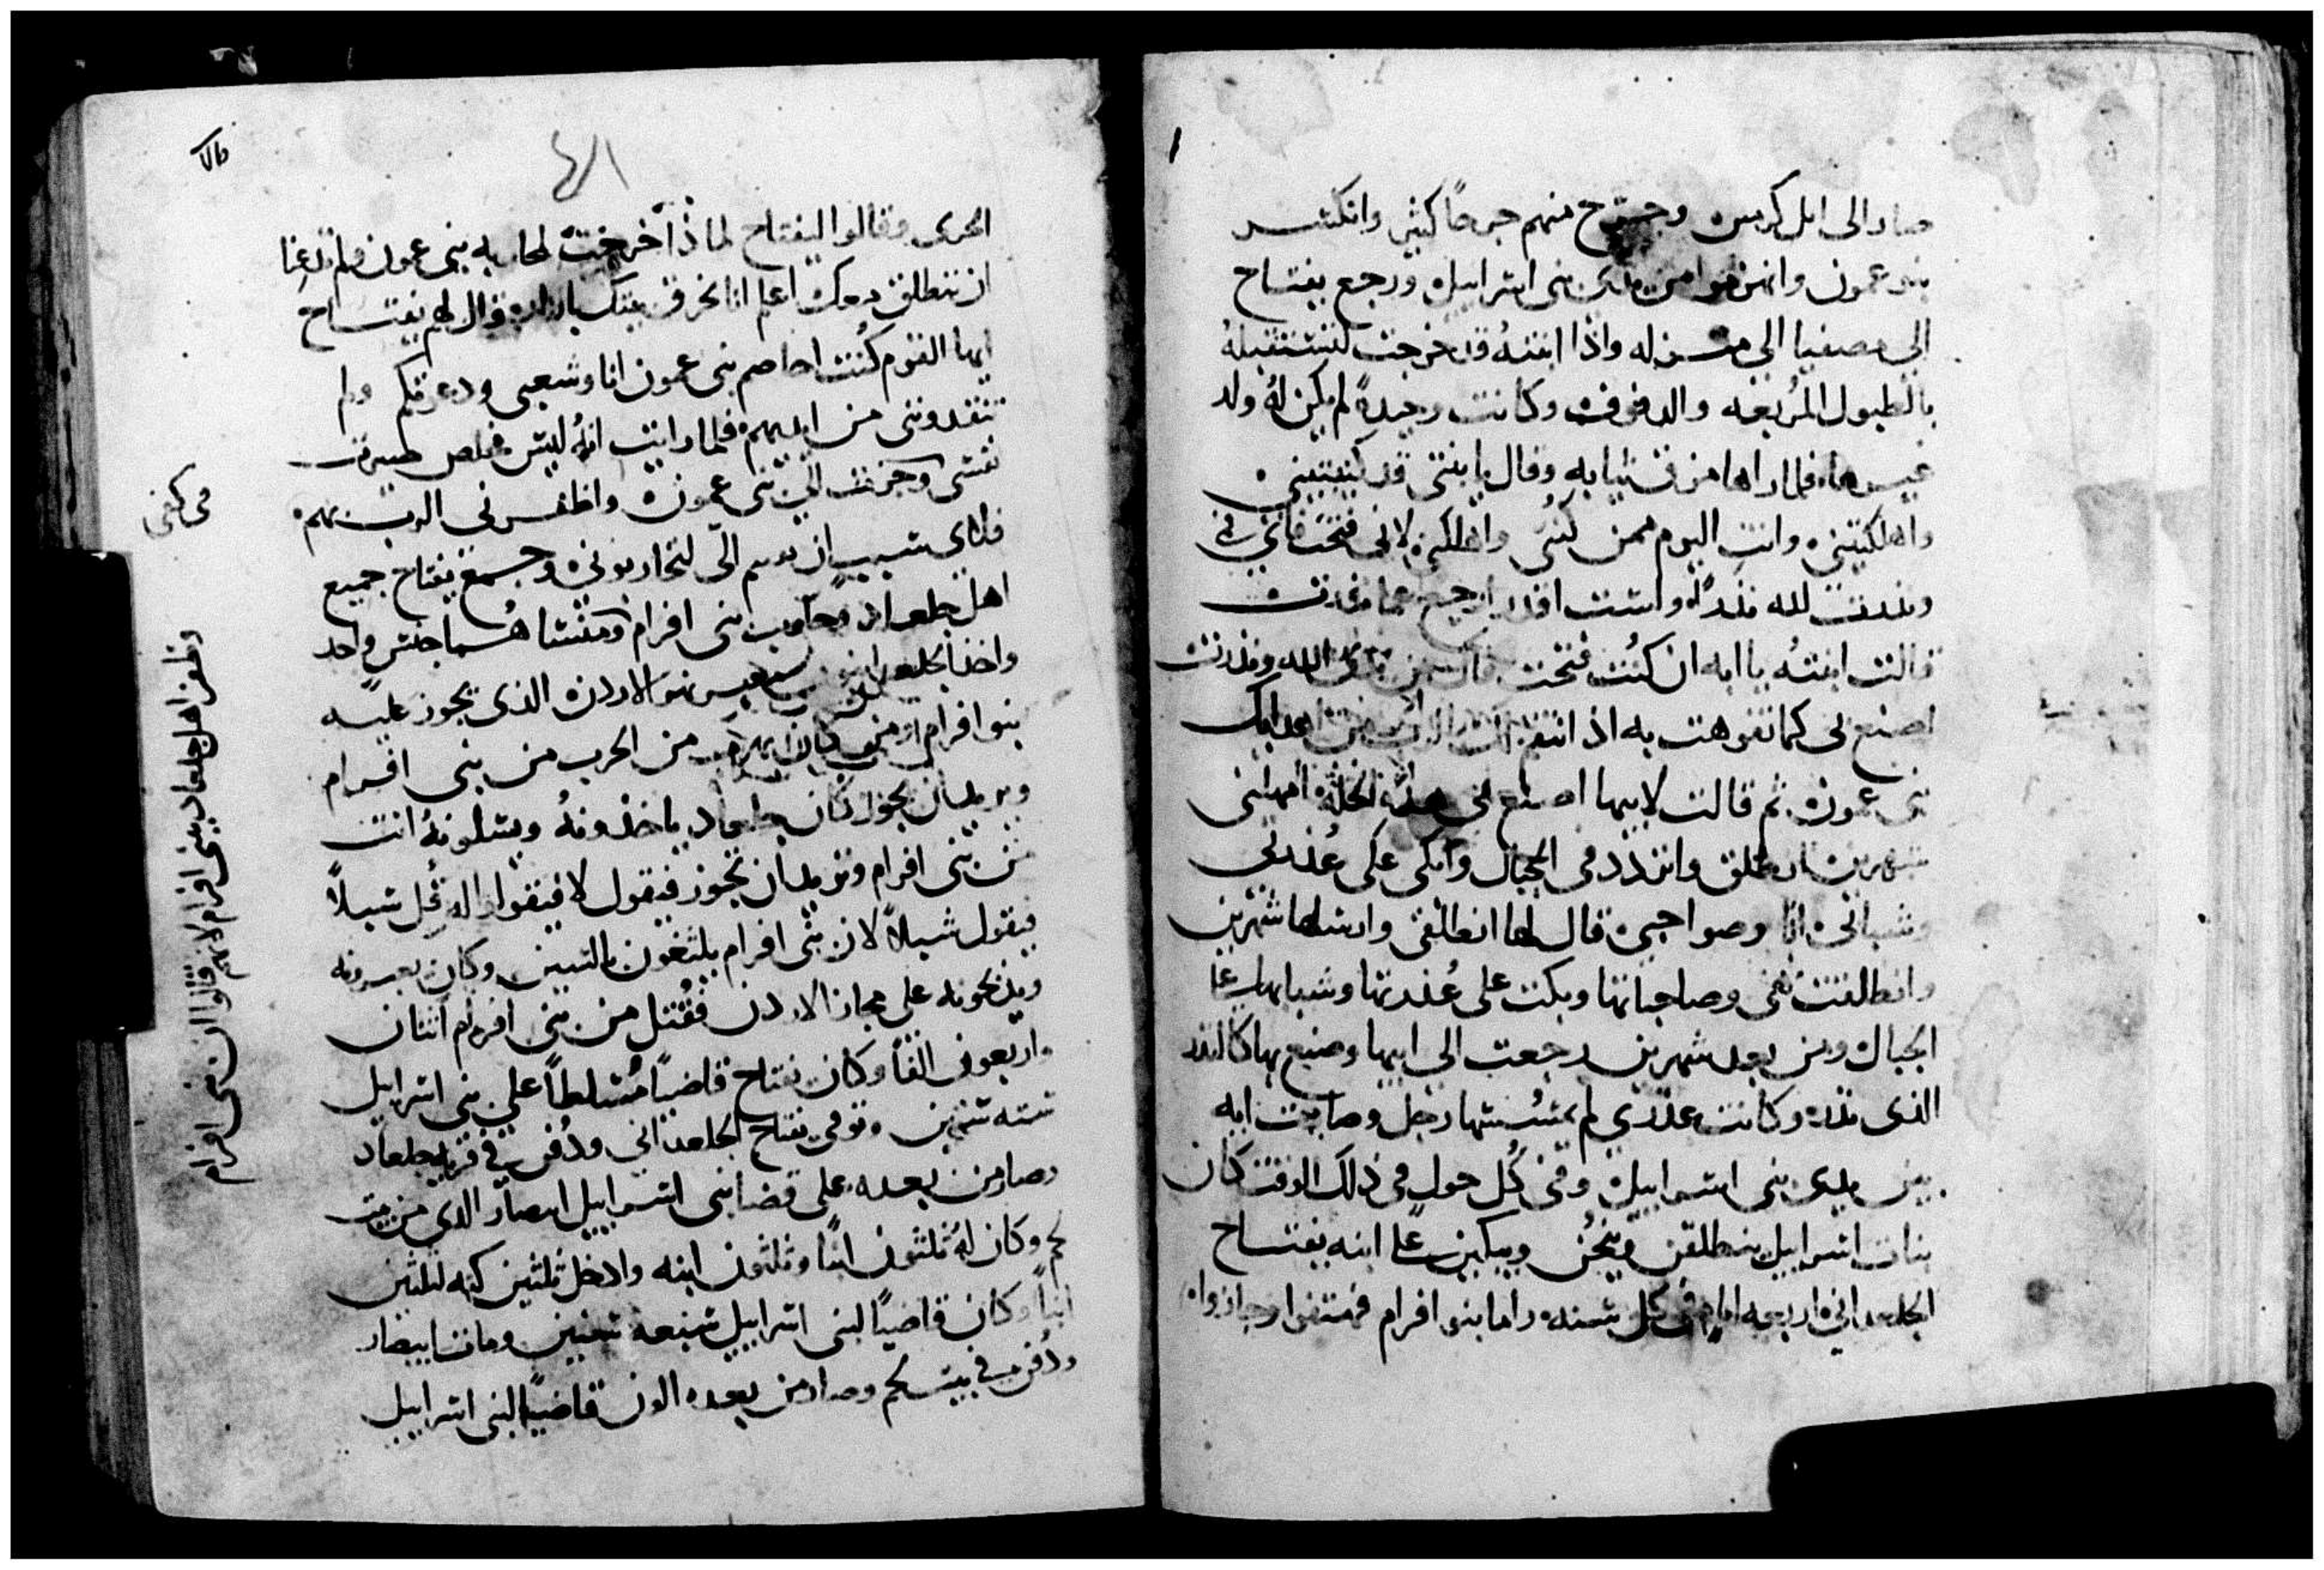 صار الى ابل كرميں وجرح منهم جرحًا كثير وانكسر
بنو عمون وانهزموا من بنى اسراييل ورجع يفتاح
الى مصفيا الى منزله واذا ابنته قد خرجت لتستقبله
بالطبول المربعه والدفوف وكانت وحيدةً لم يكن له ولد
غيرها فلما راها مزق ثيابه وقال يا بنتى قد
واهلكتينى وانت اليوم ممن لانى فتحت فاى
ونذرت لله نذرًا ولست اقدر ارجع عما نذرت
قالت ابنته يا ابه ان كنت فتحت فاك الله ونذرت
اصنع بى كما تفوهت به اذ انتقم لك الرب من اعدايك
بنى عمون ثم قالت لابيها اصنع بى هذه الخلة امهلنى
شهرين انطلق واتردد فى الجبال وابكى على عذرتى
وشبابى انا وصواحبى قال لها انطلقى وارسلها شهرين
وانطلقت هى وصاحباتها وبكت على عذرتها وشبابها على
الجبال ومن بعد شهرين رجعت الى ابيها وصنع بها كالنذر
الذى نذره وكانت عذرى لم يمسسها رجل وصارت ايه
بين يدى بنى اسراييل وفى كل حول فى ذلك الوقت كان
بنات اسراييل ينطلقن وينحن ويبكين على ابنه يفتاح
الجلعدانى اربعه ايام فى كل سنه واما بنو افرام فهتفوا وجازوا
الجرى وقالوا ليفتاح لماذا خرجت لمحاربه بنى عمون ولم تدعنا
ان ننطلق معك اعلم انا نحرق بيتك بالنار قال لهم يفتاح
ايها القوم كنت اخاصم بنى عمون انا وشعبى ودعوتكم ولم
تنقذونى من ايديهم فلما رايت انه ليس مخلص صيرت
نفسى وجزت الى بنى عمون واظفرنى الرب بهم
فلاى سبب الىّ لتحاربونى وجمع يفتاح جميع
اهل جلعاد وحارب بنى افرام ومنسا هما جنس واحد
واخذ نهر الاردن الذى يجوز عليه
بنو افرام ومن كان يهرب من الحرب من بنى افرام
ويريد ان يجوز كان جلعاد ياخذونه ويسلونه انت
من بنى افرام وتريد ان تجوز فيقول لا فيقولوا له قل سبلاً
فيقول سبلاً لان بنى افرام يلثغون بالسين وكان
ويذبحونه على مجاز الاردن فقتل من بنى افرام اثنان
واربعون الفًا وكان يفتاح قاضيًا مسلطاً على بنى اسراييل
سته سنين وتوفى يفتاح الجلعدانى ودفن فى قريه جلعاد
وصار من بعده على قضا بنى اسراييل ابصار الذى من بيت
لحم وكان له ثلثون ابنًا وثلثون ابنه وادخل ثلثين كنه لثلثين
ابنًا وكان قاضيًا لبنى اسراييل سبعه سنين ومات ابيصار
ودفن فى بيت لحم وصار من بعده الون قاضيًا لبنى اسراييل
وظفر اهل جلعاد ببنى افرام لانهم قالوا ان بنى افرام